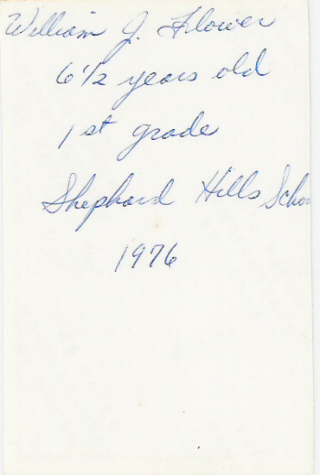 William J. Flower
6 1/2 years old
1st grade
Shephard Hills Schoo
1976